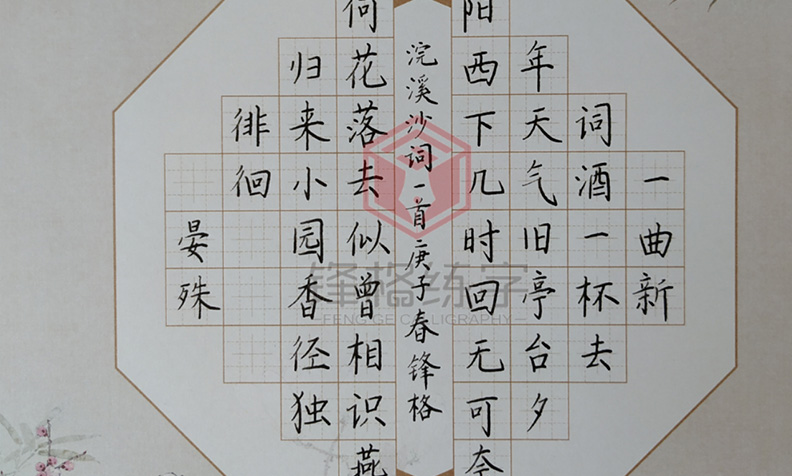 一曲新
词酒一杯去
年天气旧亭台夕
阳西下几时回无可奈
浣溪沙词一首庚子春锋格
何花落去似曾相识燕
归来小园香径独
徘徊
晏殊
锋格练字
FENG GE CALLIGRAPHY